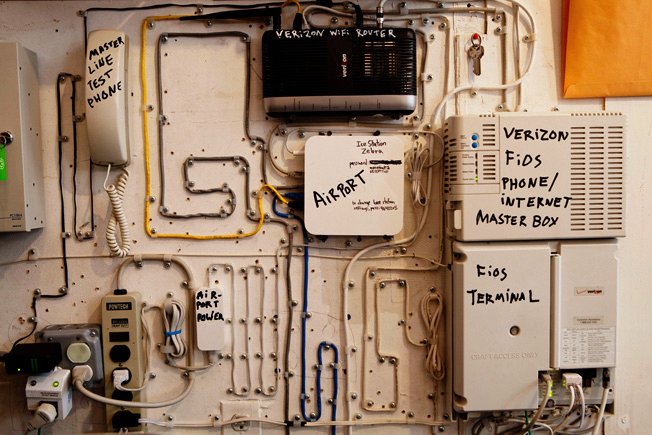 MASTER
LINE
TEST
PHONE
VERIZON WIFI ROUTER
verizon
Ice Station
Zebra
password
AIRPORT
to change base station
VERIZON
FiDS
PHONE/
INTERNET
MASTER BOX
FiOS
TERMINAL
verizon
CRAFT ACCESS ONLY
AIR-
PORT
POWER
POWTECH